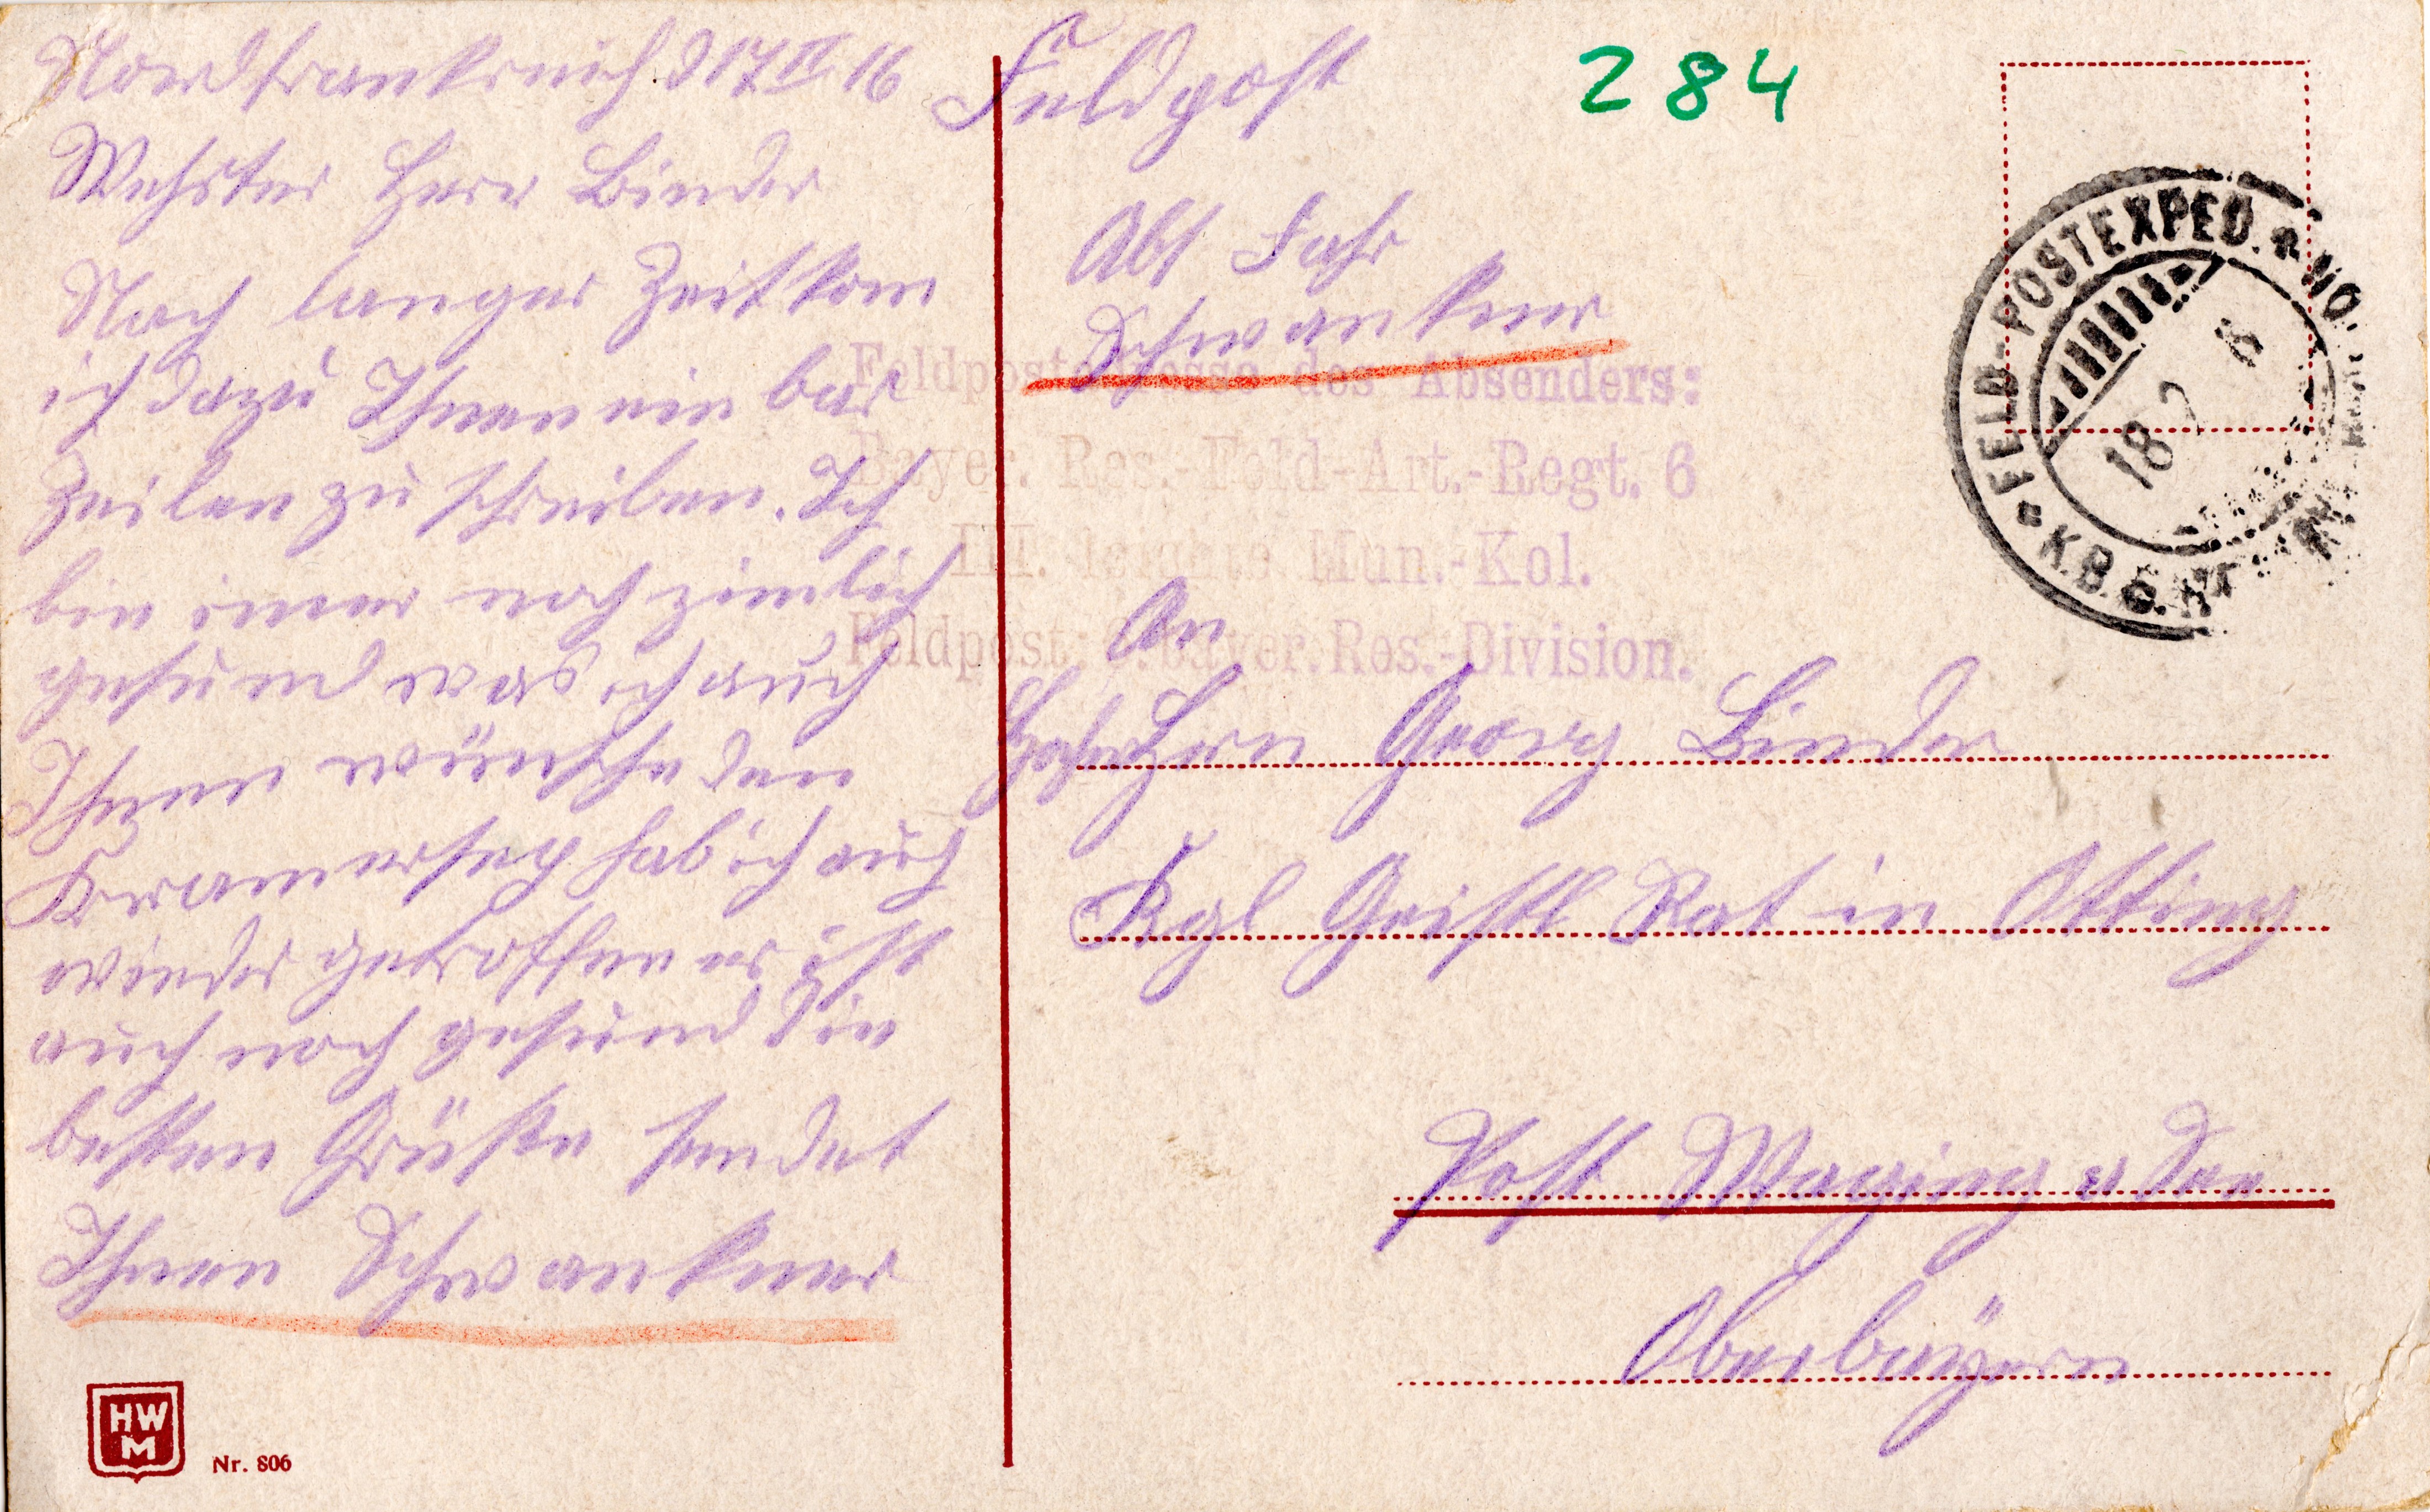 Nordfrankreich d 17 II 16
Wehrter Herr Binder
Nach langer Zeit kom
ich dazu Ihnen ein bar
Zeilen zu schreiben. Ich
bin imer noch zimlich
gesund was ich auch
Ihnen wünsche den
Kramersepp hab ich auch
wieder getroffen er ist
auch noch gesund Die
besten Grüße sendet
Ihnen Schwankner
HWM
Nr. 806
Feldpost
284
Abs Fahr
Schwankner
Feldpostadresse des Absenders:
Bayer. Res.-Feld-Art.-Regt. 6
III. leichte Mun.-Kol.
Feldpost: bayer. Res.-Division.
FELD-POSTEXPED.
18 2
K.B. 6.
An
Herrn Georg Binder
Kgl Geistl Rat in Otting
Post Waging a See
Oberbayern